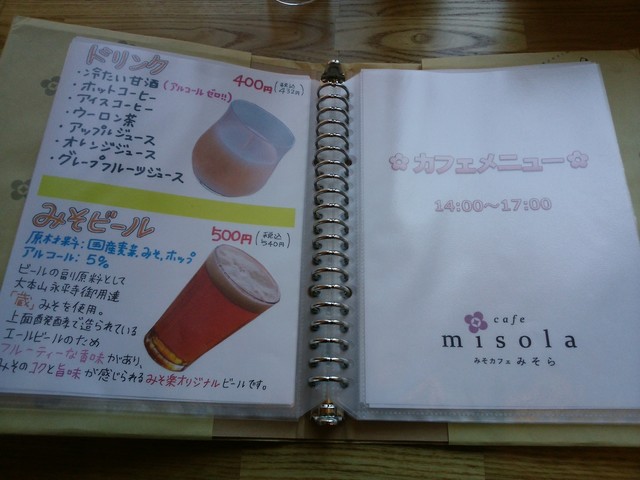 ドリンク
400円(税込432円)
・冷たい甘酒(アルコールゼロ!!)
・ホットコーヒー
・アイスコーヒー
・ウーロン茶
・アップルジュース
・オレンジジュース
・グレープフルーツジュース
みそビール
500円(税込540円)
原材料:国産麦芽、みそ、ホップ
アルコール:5%
ビールの副原料として
大本山永平寺御用達
「蔵」みそを使用。
上面発酵で造られている
エールビールのため
フルーティーな香味があり、
みそのコクと旨味が感じられるみそ楽オリジナルビールです。
✿カフェメニュー✿
14:00〜17:00
cafe
misola
みそカフェ みそら